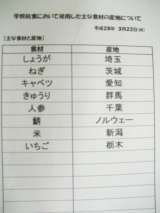 学校給食において使用した主な食材の産地について
平成28年 3月23日(水)
【主な食材と産地】
食材 産地
しょうが 埼玉
ねぎ 茨城
キャベツ 愛知
きゅうり 群馬
人参 千葉
鯖 ノルウェー
米 新潟
いちご 栃木